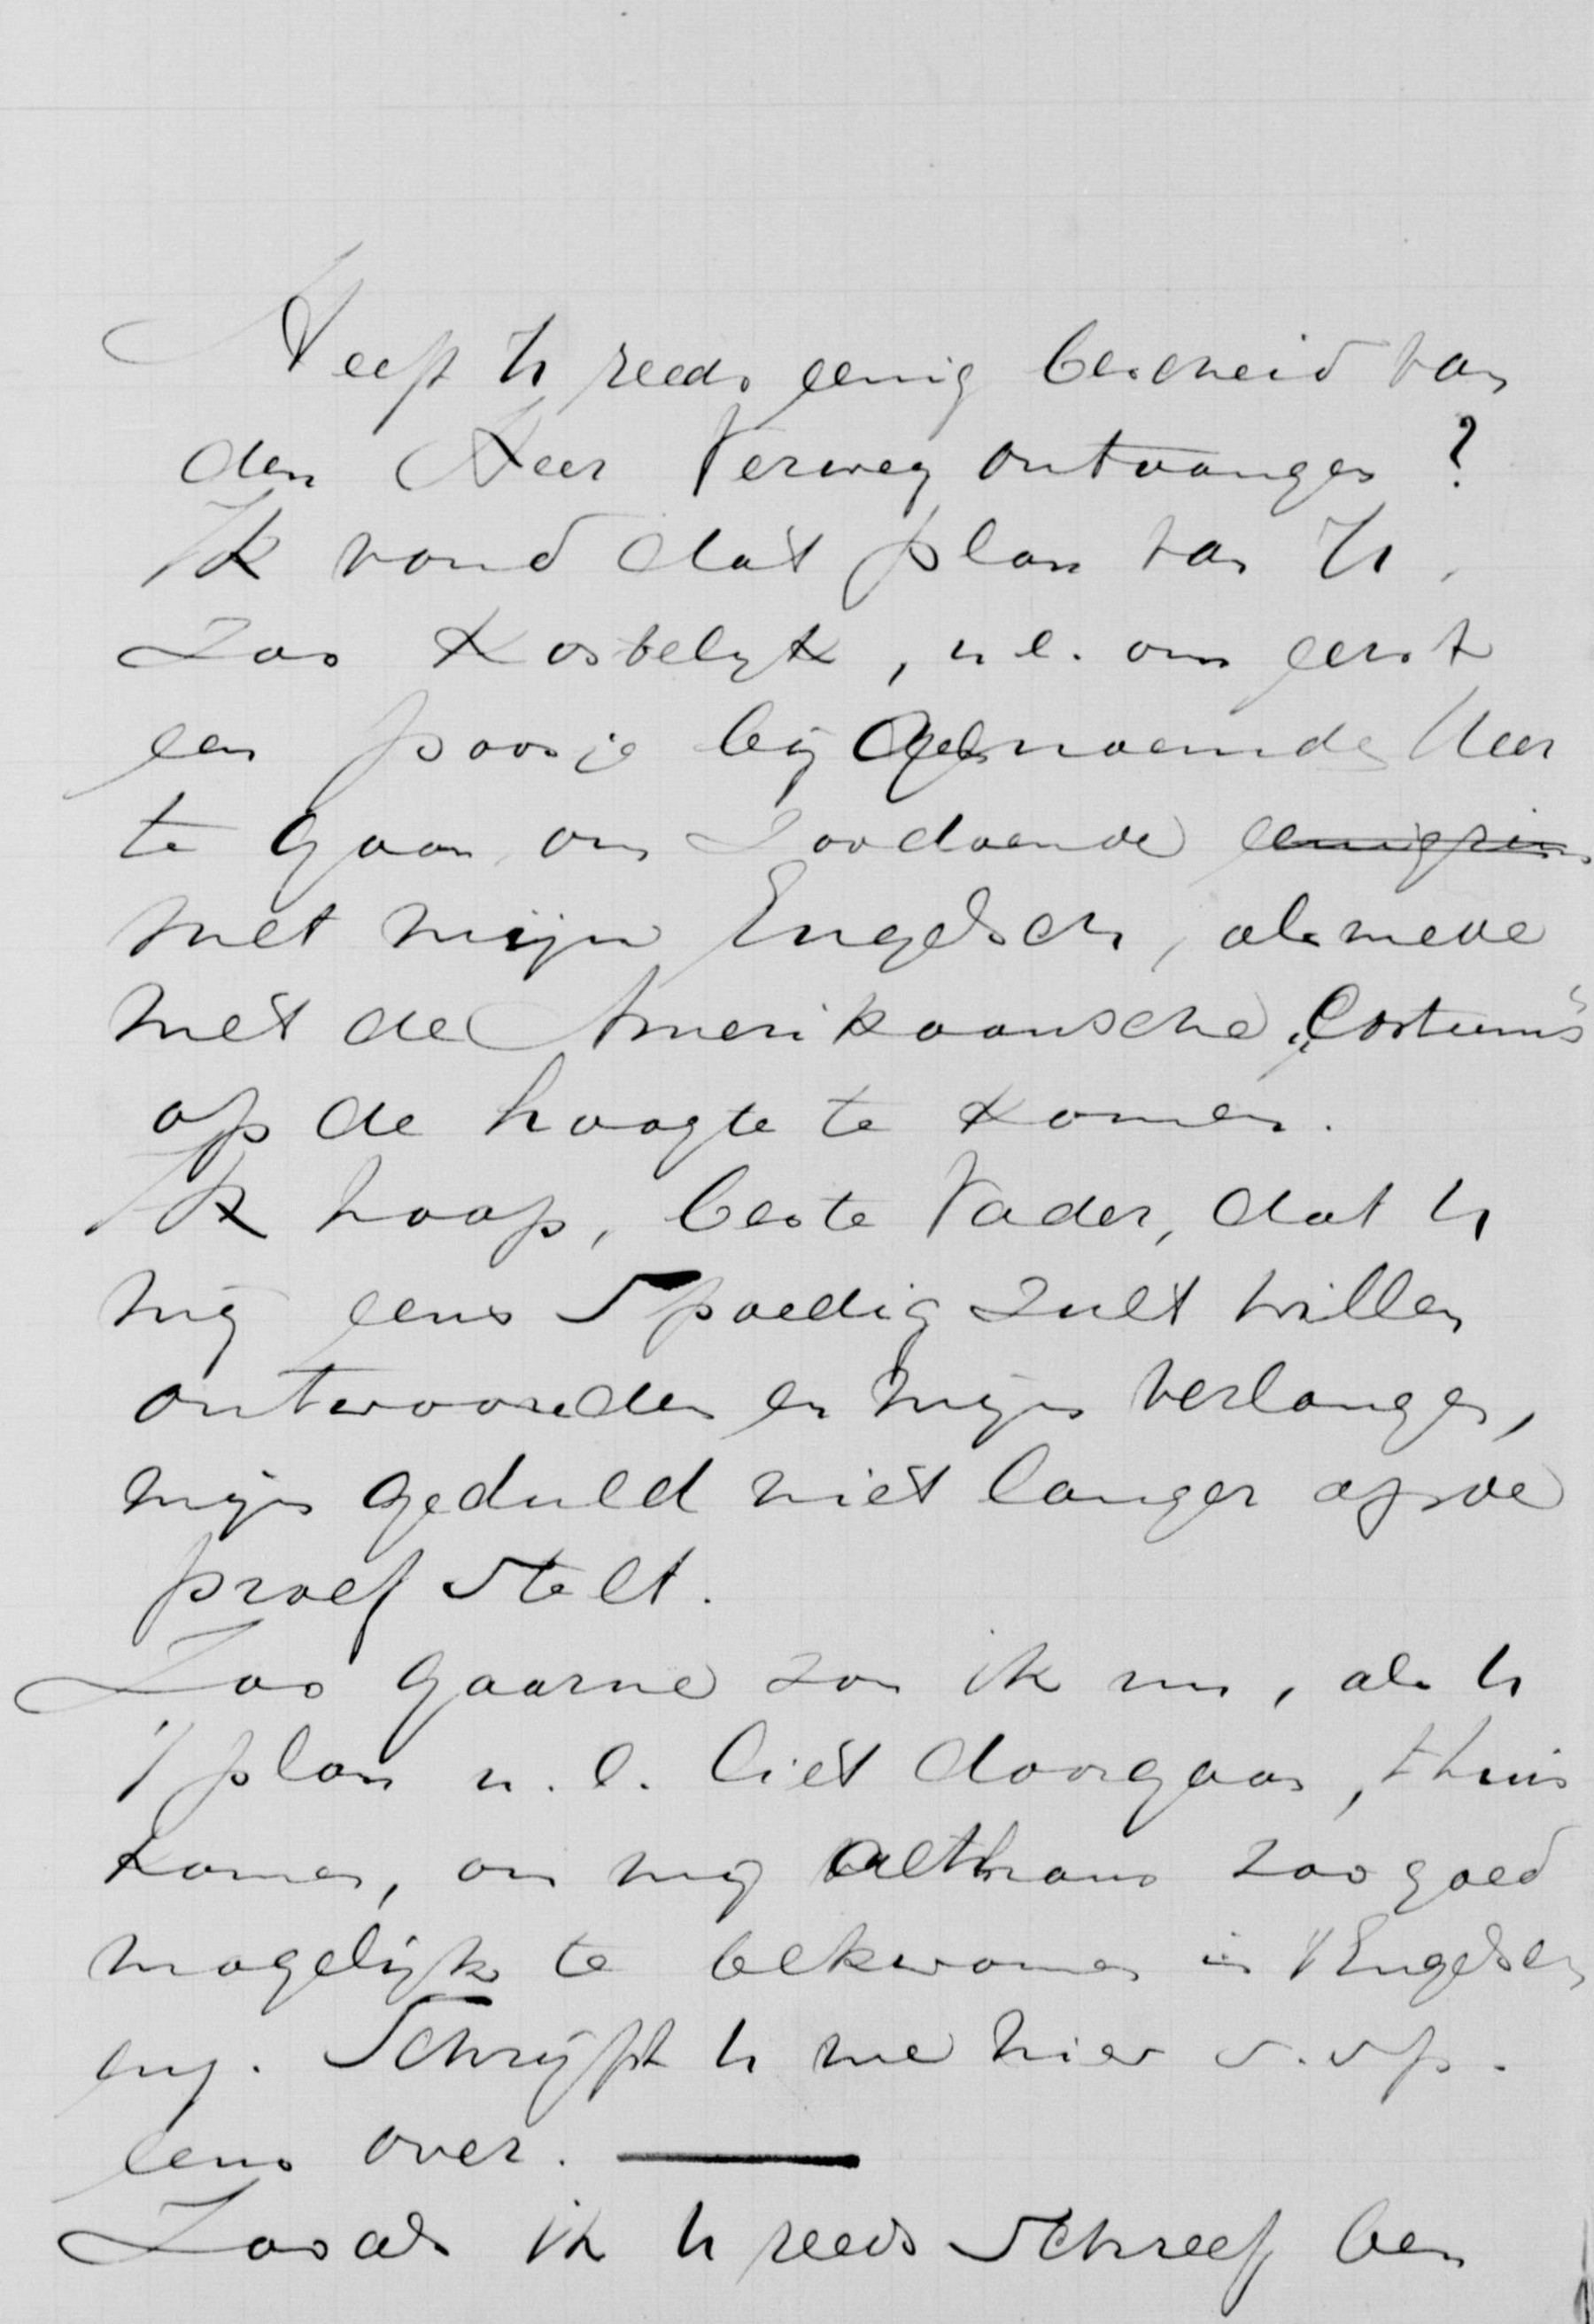 Heeft U reeds eenig bescheid van
den Heer Verwey ontvangen ?
Ik vond dat plan van U,
zoo kostelyk, n.l. om eerst
een poosje bij genoemde Heer
te gaan, om zoodoende
met mijn Engelsch, alsmede
met de Amerikaansche „Costum's
op de hoogte te komen.
Ik hoop, beste Vader, dat U
mij eens spoedig zult willen
antwoorden en mijn verlangen,
mijn geduld niet langer op de
proef stelt.
Zoo gaarne zou ik nu, als U
't plan n.l. liet doorgaan, thuis
komen, om mij althans zoo goed
mogelijk te bekwamen in 't Engelsch
enz. Schrijft U me hier s.v.p.
eens over. —
Zooals ik U reeds schreef ben